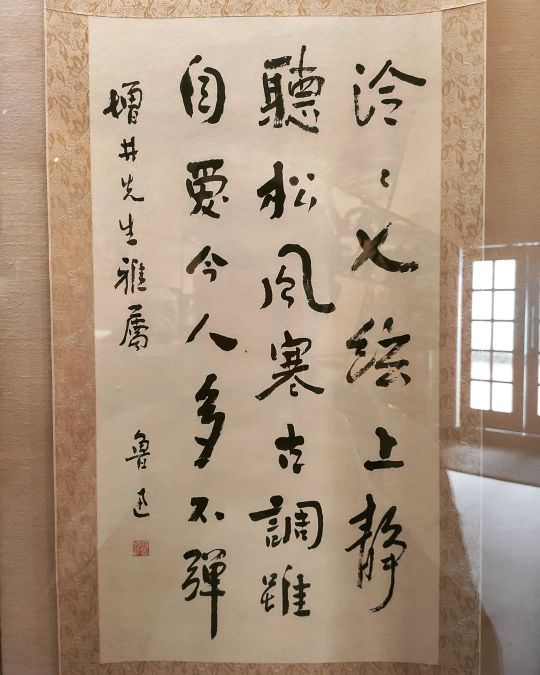 泠々七絃上靜
聽松風寒古調雖
自愛今人多不彈
增井先生雅屬
魯迅